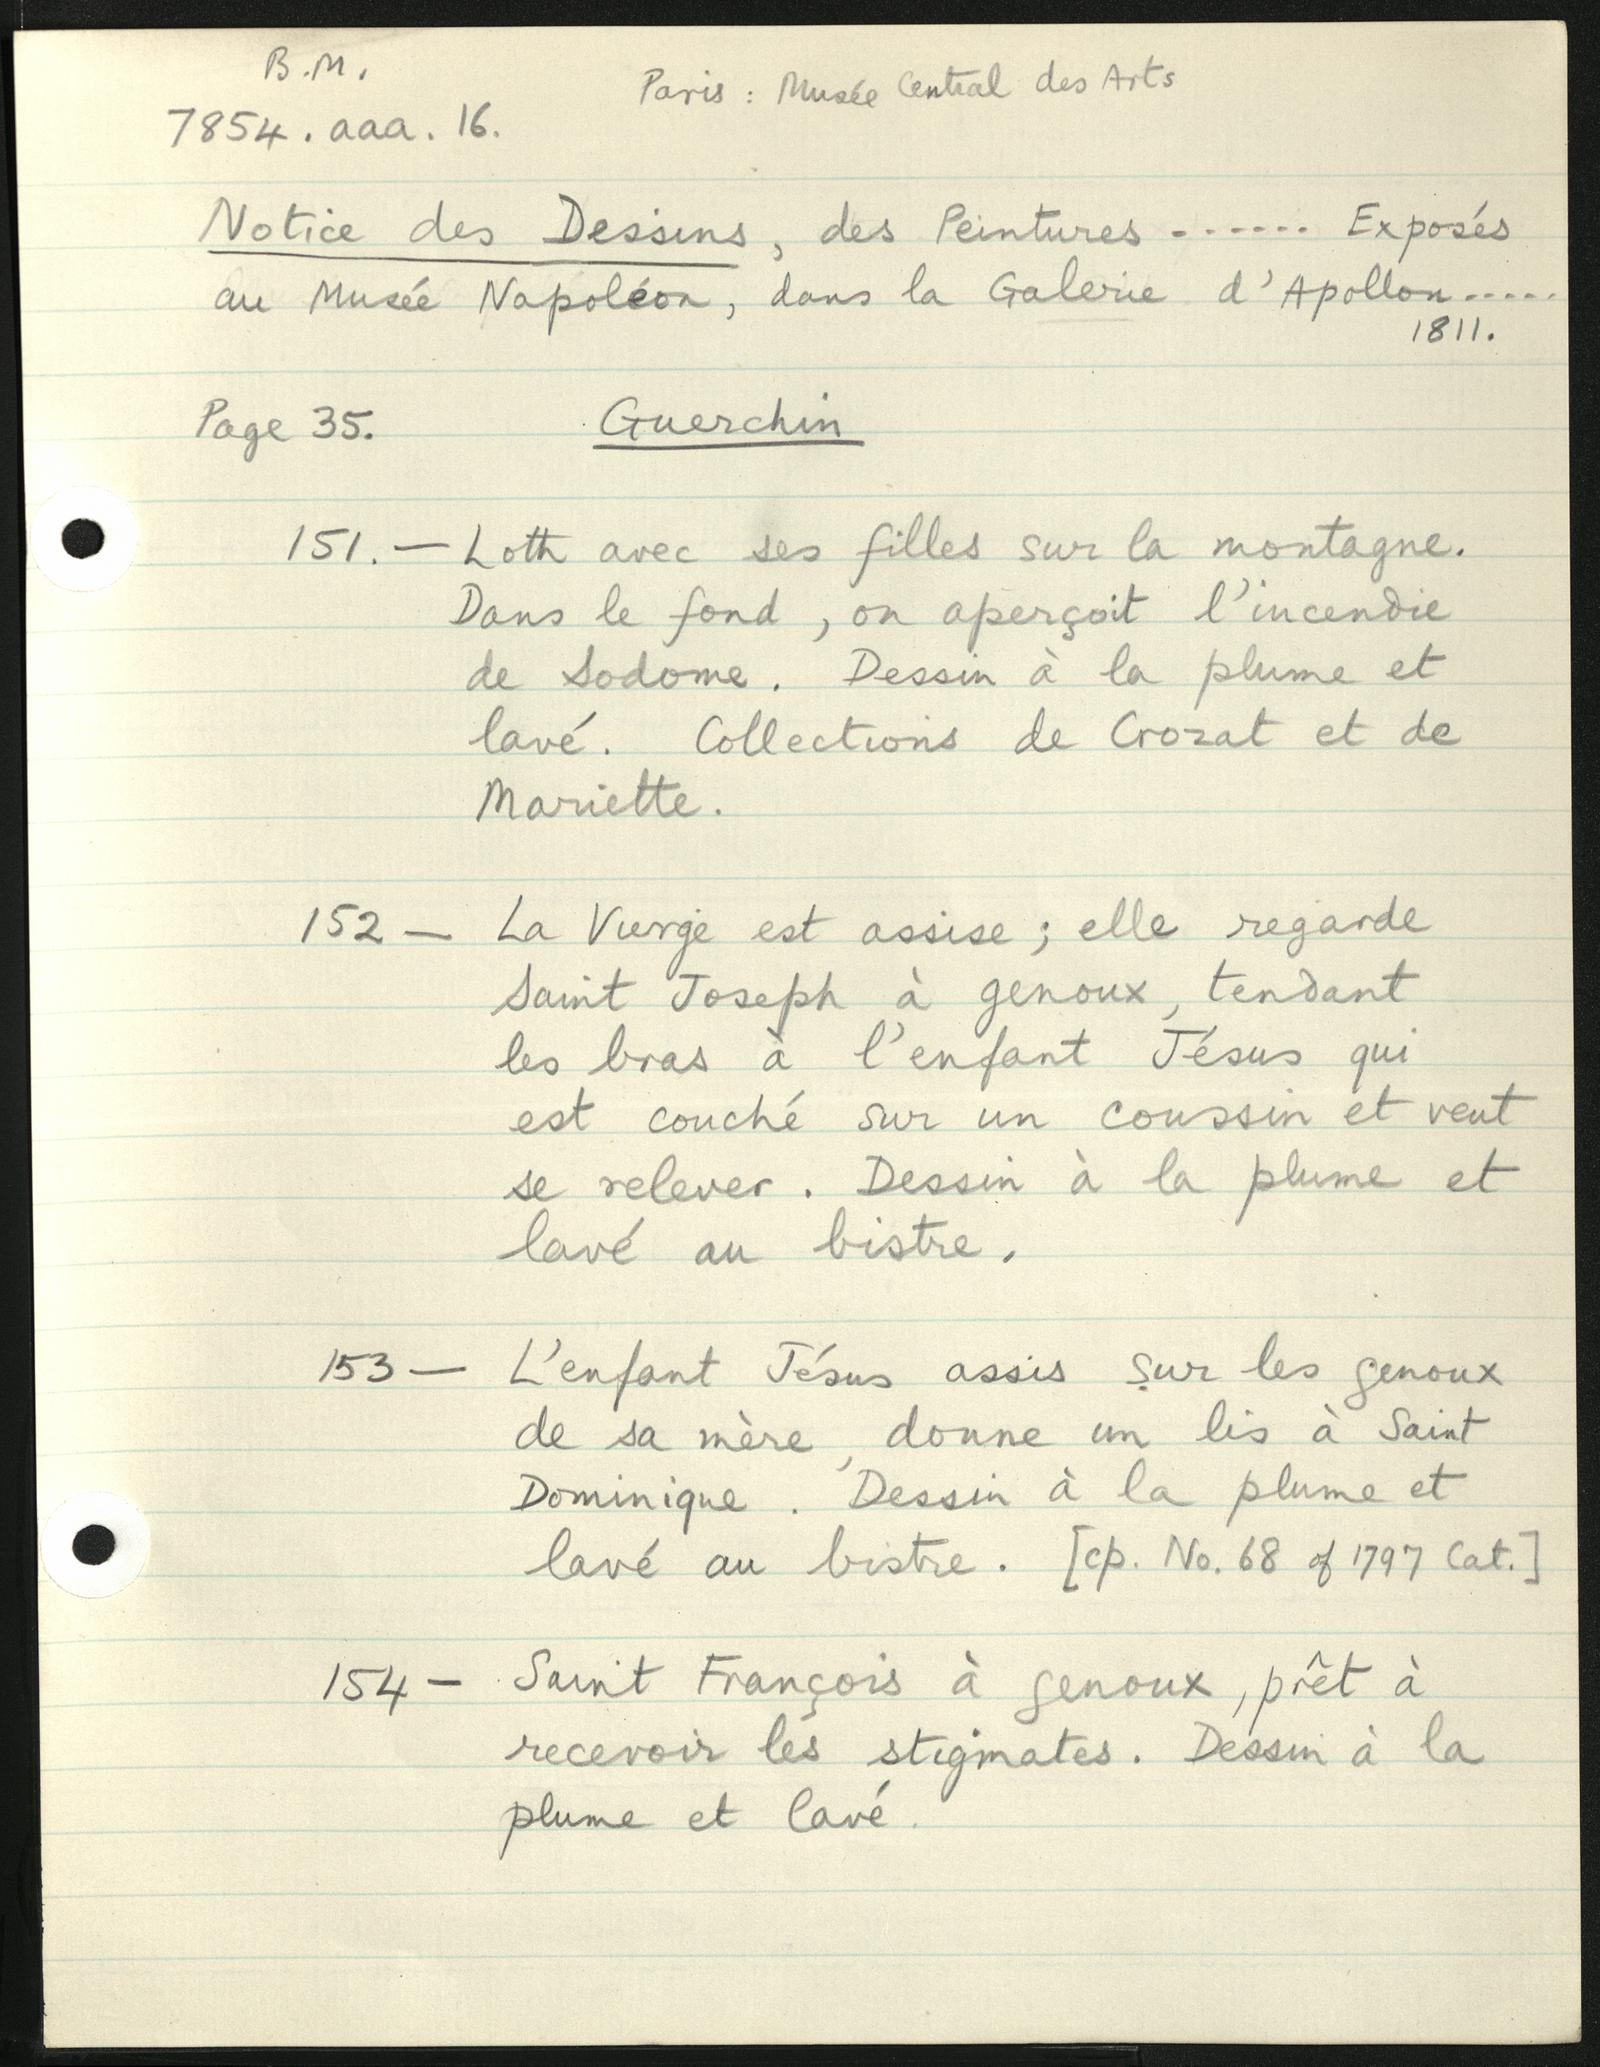 B.M.
Paris : Musée Central des Arts
7854. aaa. 16.
Notice des Dessins, des Peintures ------- Exposés
au Musée Napoléon, dans la Galerie d'Apollon-----
1811.
Page 35. Guerchin
151. — Loth avec ses filles sur la montagne.
Dans le fond, on aperçoit l'incendie
de Sodome. Dessin à la plume et
lavé. Collections de Crozat et de
Mariette.
152 — La Vierge est assise; elle regarde
Saint Joseph à genoux, tendant
les bras à l'enfant Jésus qui
est couché sur un coussin et veut
se relever. Dessin à la plume et
lavé au bistre.
153 — L'enfant Jésus assis sur les genoux
de sa mère, donne un lis à Saint
Dominique. Dessin à la plume et
lavé au bistre. [cp. No. 68 of 1797 Cat.]
154 — Saint François à genoux, prêt à
recevoir les stigmates. Dessin à la
plume et lavé.